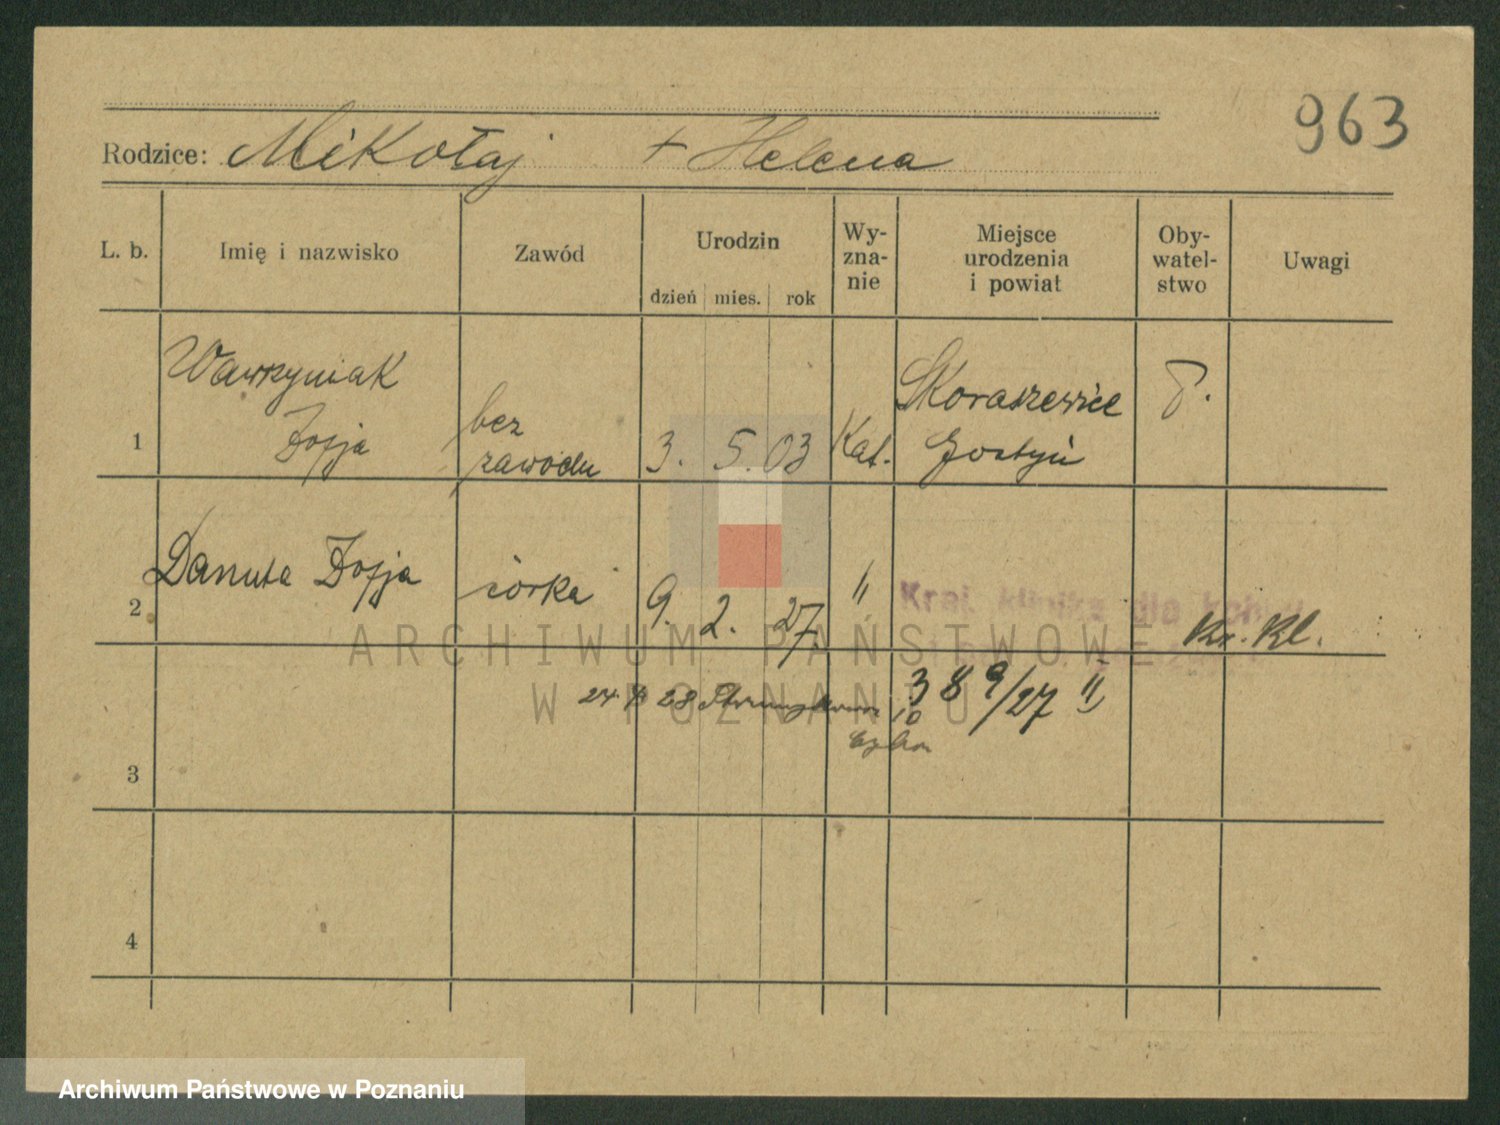 963
Rodzice: Mikołaj + Helena
L. b. Imię i nazwisko Zawód Urodzin dzień mies. rok Wy-zna-nie Miejsce urodzenia i powiat Oby-watel-stwo Uwagi
Wawrzyniak Skoraszewice P.
1 Zofja bez zawodu 3. 5. 03 Kat. Gostyń
Danuta Zofja córka 〃 Kraj. klinika dla kobiet
2 9. 2. 27. Kr. Kl.
ARCHIWUM PAŃSTWOWE
W POZNANIU
24 28 10 389/27 II
3
4
Archiwum Państwowe w Poznaniu